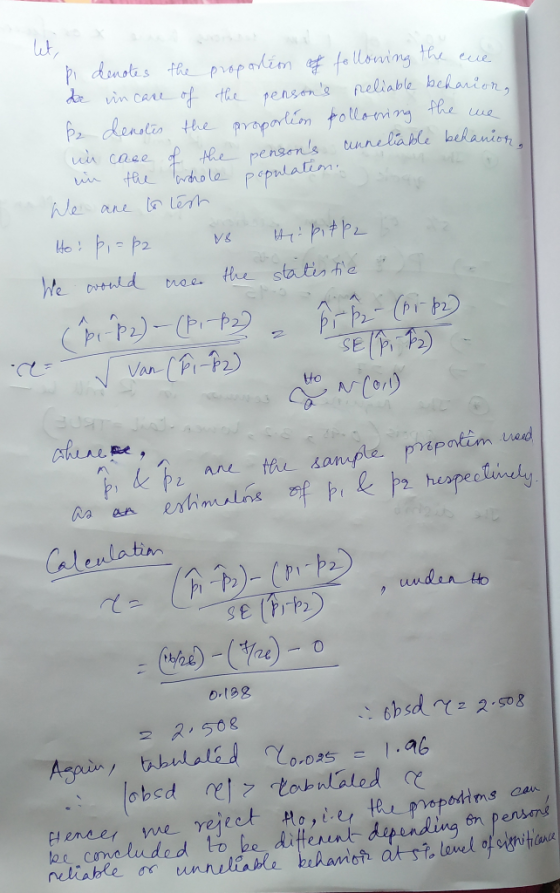 Let,
p1 denotes the proportion of following the cue
in case of the person's reliable behavior,
p2 denotes the proportion following the cue
in case of the person's unreliable behavior,
in the whole population.
We are to test
H0: p1 = p2 vs H1: p1 ≠ p2
We would use the statistic
τ = ((p̂1-p̂2) - (p1-p2)) / √Var(p̂1-p̂2) = (p̂1-p̂2 - (p1-p2)) / SE(p̂1-p̂2)
H0 ~ a N(0,1)
where,
p̂1 & p̂2 are the sample proportion used
as estimators of p1 & p2 respectively.
Calculation
τ = ((p̂1-p̂2) - (p1-p2)) / SE(p̂1-p̂2) , under H0
= ((16/26) - (7/26) - 0) / 0.138
= 2.508 ∴ obsd τ = 2.508
Again, tabulated τ0.025 = 1.96
∴ |obsd τ| > tabulated τ
Hence, we reject H0, i.e, the proportions can
be concluded to be different depending on person's
reliable or unreliable behavior at 5% level of significance